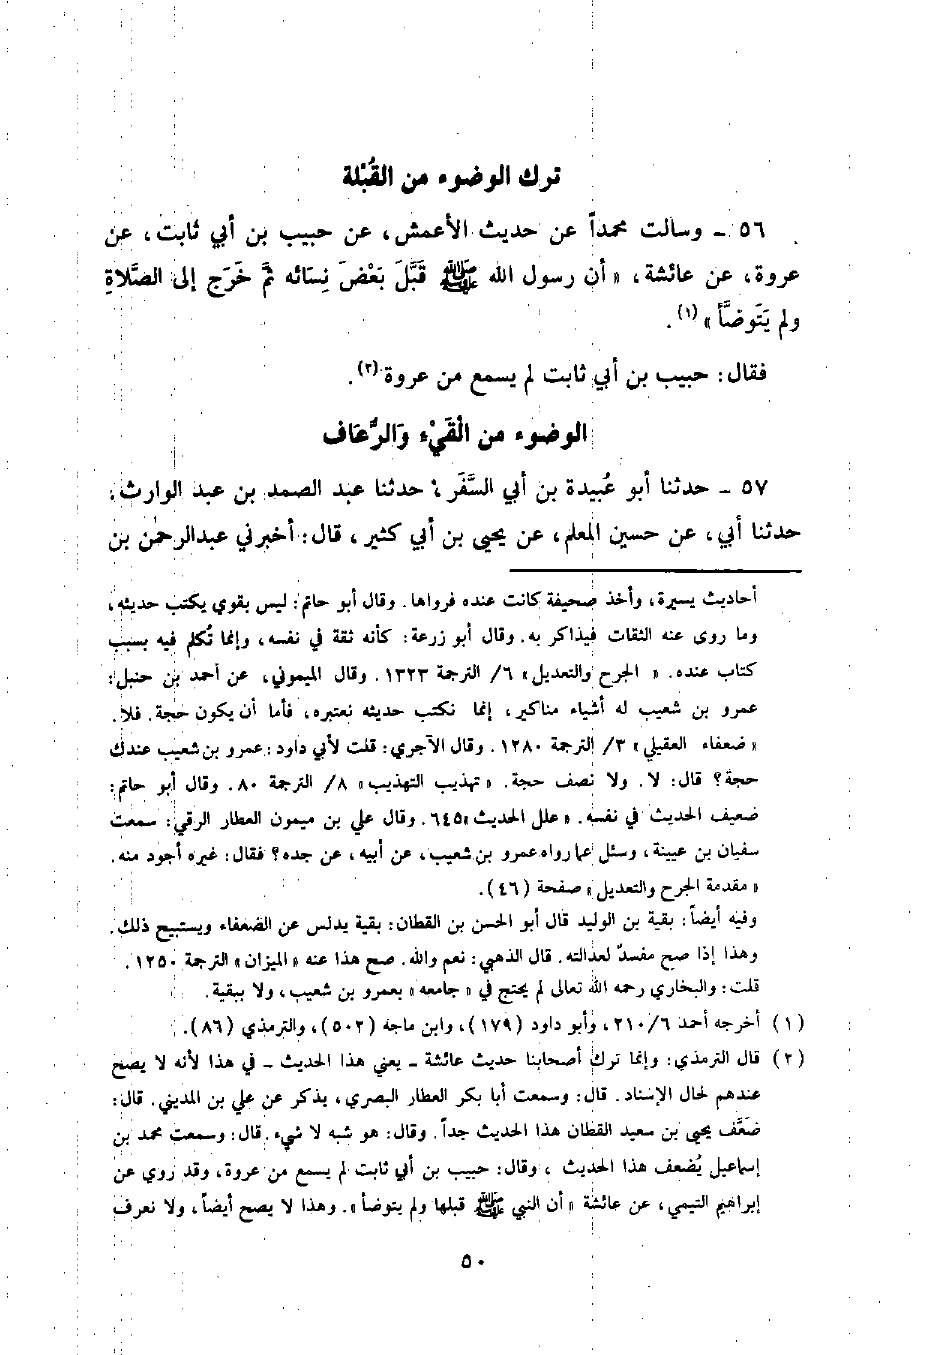 ترك الوضوء من القُبْلة
٥٦ - وسألت محمداً عن حديث الأعمش، عن حبيب بن أبي ثابت، عن
عروة، عن عائشة، « أن رسول الله ﷺ قَبَّلَ بَعْضَ نِسَائه ثمَّ خَرَج إلى الصَّلاةِ
ولم يَتَوضَّأ » (١).
فقال: حبيب بن أبي ثابت لم يسمع من عروة (٢).
الوضوء من الْقَيْء وَالرُّعَاف
٥٧ - حدثنا أبو عُبيدة بن أبي السَّفَر، حدثنا عبد الصمد بن عبد الوارث،
حدثنا أبي، عن حسين المعلم، عن يحيى بن أبي كثير، قال: أخبرني عبدالرحمٰن بن
أحاديث يسيرة، وأخذ صحيفة كانت عنده فرواها. وقال أبو حاتم: ليس بقوي يكتب حديثه،
وما روى عنه الثقات فيذاكر به. وقال أبو زرعة: كأنه ثقة في نفسه، وإنما تُكلم فيه بسبب
كتاب عنده. « الجرح والتعديل» ٦/ الترجمة ١٣٢٣. وقال الميموني، عن أحمد بن حنبل:
عمرو بن شعيب له أشياء مناكير، إنما نكتب حديثه نعتبره، فأما أن يكون حجة. فلا.
« ضعفاء العقيلي» ٣/ الترجمة ١٢٨٠. وقال الآجري: قلت لأبي داود: عمرو بن شعيب عندك
حجة؟ قال: لا. ولا نصف حجة. « تهذيب التهذيب» ٨/ الترجمة ٨٠. وقال أبو حاتم:
ضعيف الحديث في نفسه. « علل الحديث »٦٤٥. وقال علي بن ميمون العطار الرقي: سمعت
سفيان بن عيينة، وسئل عما رواه عمرو بن شعيب، عن أبيه، عن جده؟ فقال: غيره أجود منه.
« مقدمة الجرح والتعديل » صفحة (٤٦).
وفيه أيضاً: بقية بن الوليد قال أبو الحسن بن القطان: بقية يدلس عن الضعفاء ويستبيح ذلك.
وهذا إذا صح مفسدٌ لعدالته. قال الذهبي: نعم والله. صح هذا عنه « الميزان» الترجمة ١٢٥٠.
قلت: والبخاري رحمه الله تعالى لم يحتج في « جامعه» بعمرو بن شعيب، ولا ببقية.
(١) أخرجه أحمد ٢١٠/٦، وأبو داود (١٧٩)، وابن ماجة (٥٠٢)، والترمذي (٨٦).
(٢) قال الترمذي: وإنما ترك أصحابنا حديث عائشة - يعني هذا الحديث - في هذا لأنه لا يصح
عندهم لحال الإسناد. قال: وسمعت أبا بكر العطار البصري، يذكر عن علي بن المديني. قال:
ضَعَّف يحيى بن سعيد القطان هذا الحديث جداً. وقال: هو شبه لا شيء. قال: وسمعت محمد بن
إسماعيل يُضعف هذا الحديث ، وقال: حبيب بن أبي ثابت لم يسمع من عروة، وقد روي عن
إبراهيم التيمي، عن عائشة « أن النبي ﷺ قبلها ولم يتوضأ». وهذا لا يصح أيضاً، ولا نعرف
٥٠